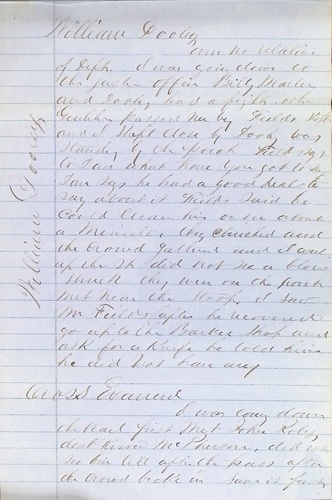 William Dooley
am no relation
of Deft. I was going down to
the justice office Billy
and Dooley had a fight the
passed me by Fields
and I stept close by Dooley was
standing by the porch Fields says
to Tom what have you got to say
Tom says he had a good deal to
say about it Fields said he
Could Clean him out in about
a Minute. they clinched and
the crowd gathered and I went
up the St did not see a blow
struck they were on the porch
met near the Stoop. I saw
Mr Fields after he recovered
go up to the Barber Shop and
ask for a Knife he told him
he did not have any
Cross Examined
I was coming down
the first met John
dont know McPherson, did not
see him till after the fuss after
the crowd broke in
William Dooley